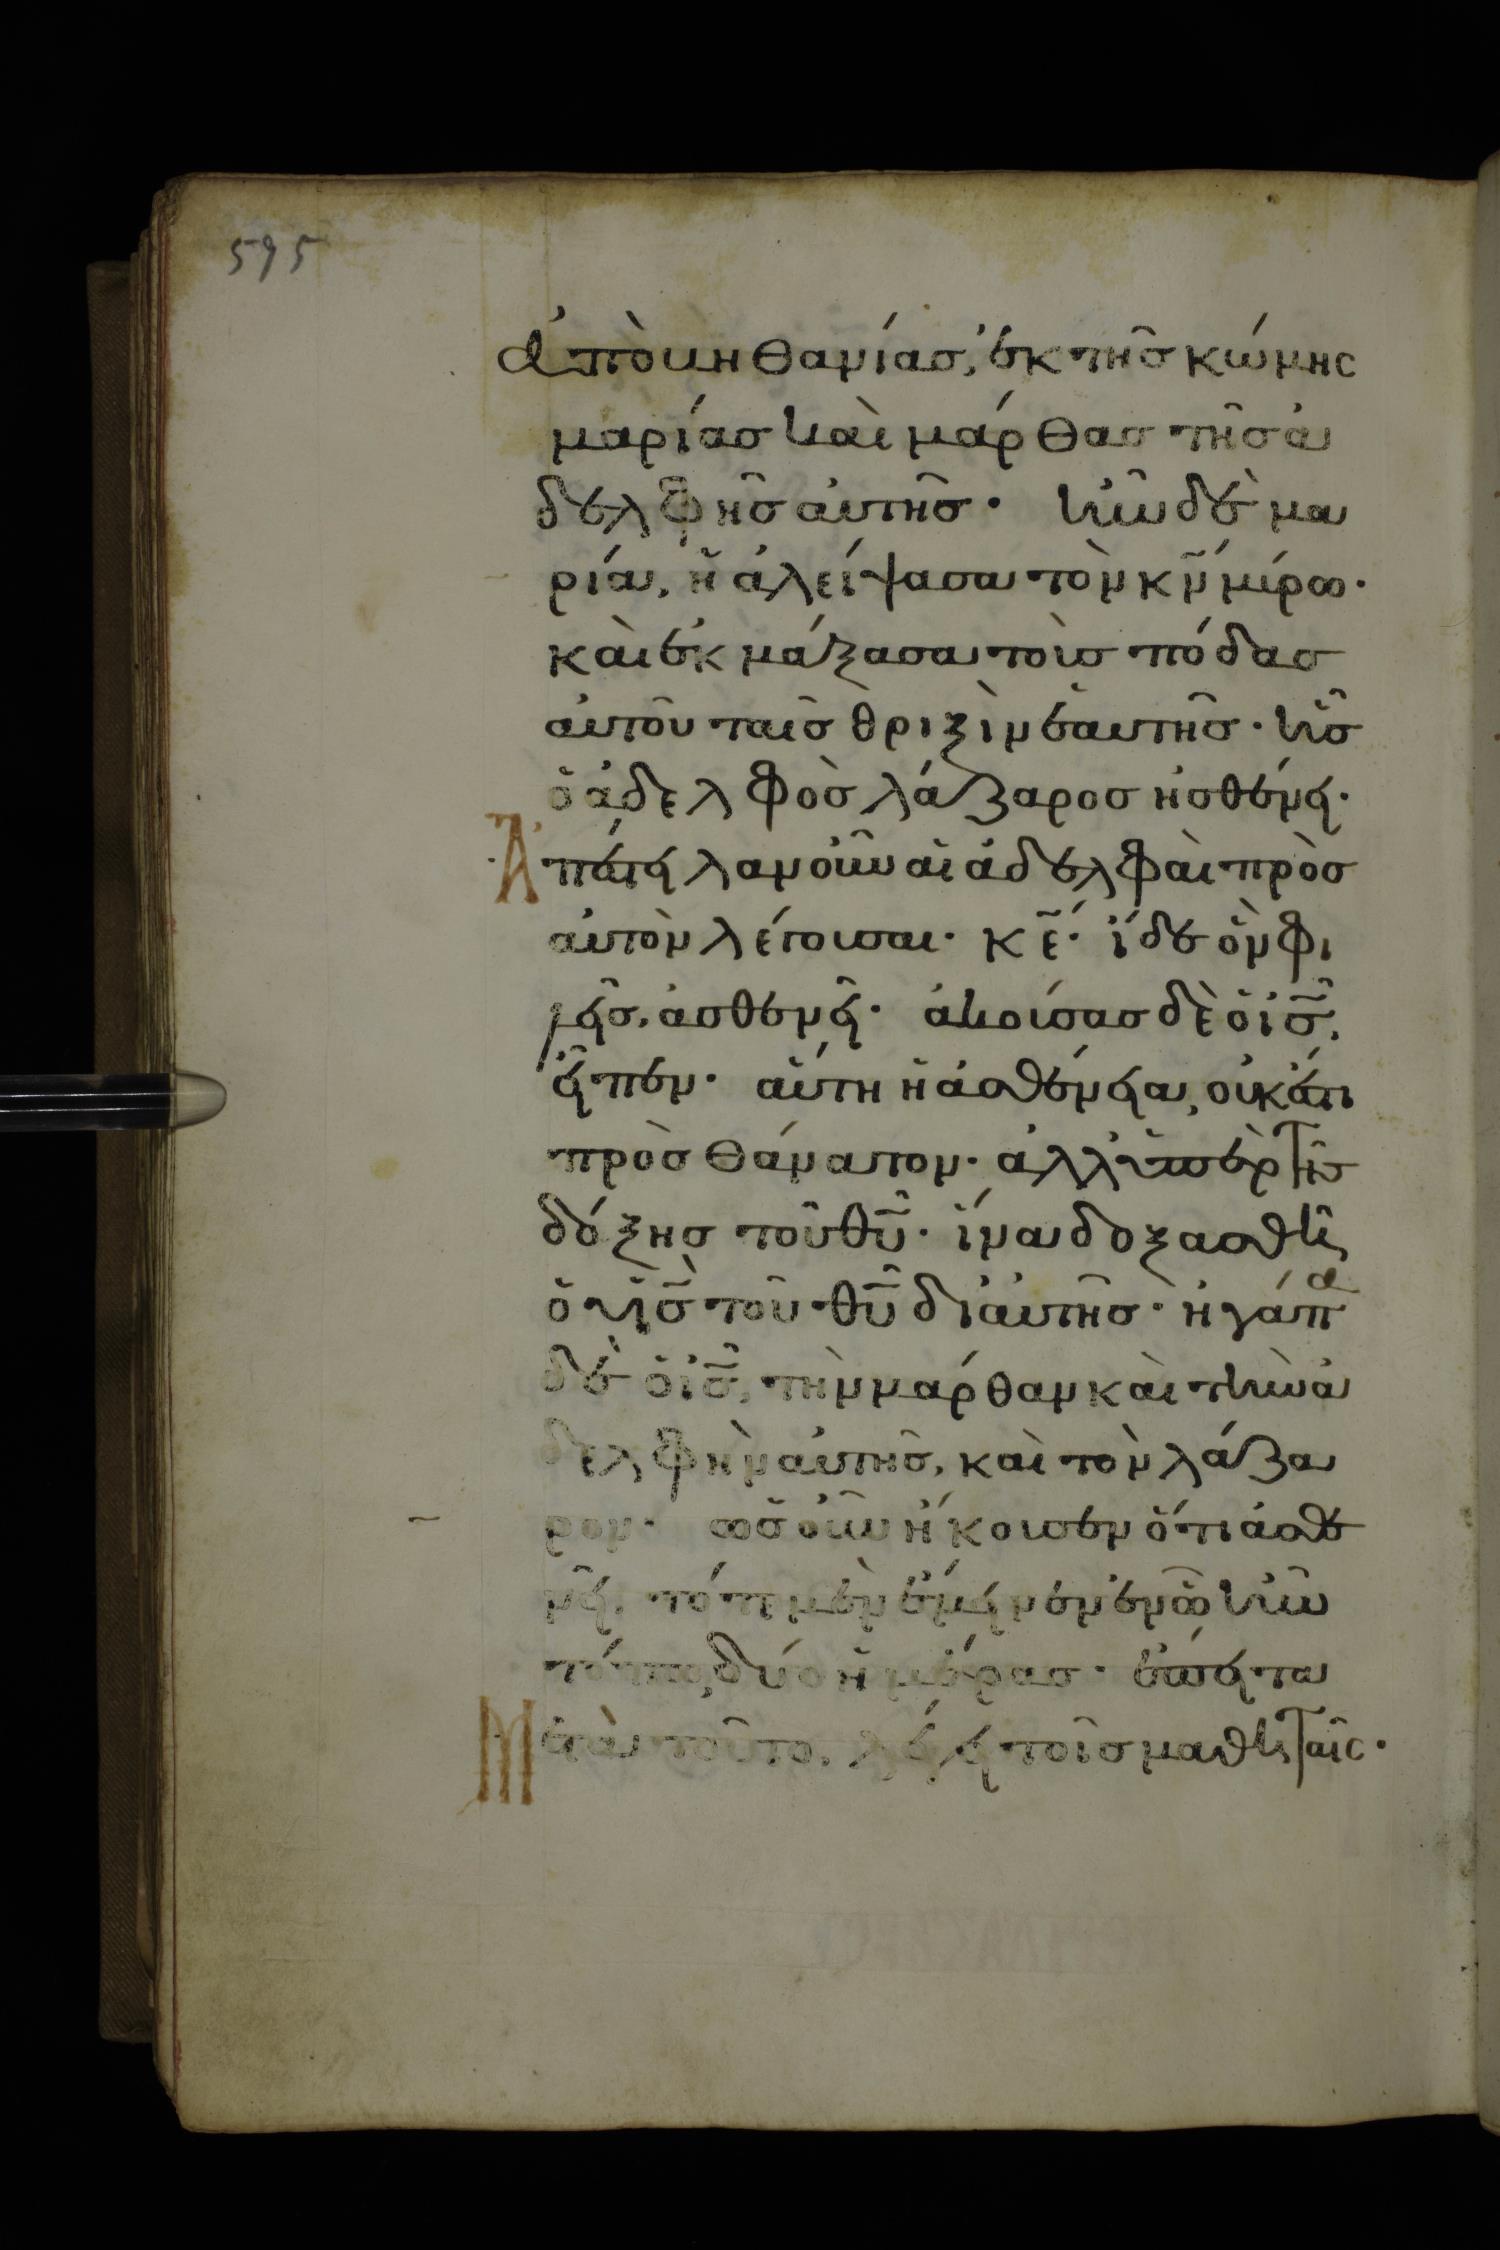 595
ἀπὸ βηθανίας, ἐκ τῆς κώμης
μαρίας καὶ μάρθας τῆς ἀ
δελφῆς αὐτῆς· ἦν δὲ μα
ρία, ἡ ἀλείψασα τὸν κ̅ν̅ μύρω·
καὶ ἐκμάξασα τοὺς πόδας
αὐτοῦ ταῖς θριξὶν ἑαυτῆς· ἧς
ὁ ἀδελφὸς λάζαρος ἠσθένει·
Ἀπέστειλαν οὖν αἱ ἀδελφαὶ πρὸς
αὐτὸν λέγουσαι· κ̅ε̅· ἴδε ὃν φι
λεῖς, ἀσθενεῖ· ἀκούσας δὲ ὁ ι̅ς̅,
εἶπεν· αὕτη ἡ ἀσθένεια, οὐκ ἔστι
πρὸς θάνατον· ἀλλ' ὑπὲρ τῆς
δόξης τοῦ θ̅υ̅· ἵνα δοξασθῆ
ὁ υ̅ς̅ τοῦ θ̅υ̅ δι' αὐτῆς· ἠγάπα
δὲ ὁ ι̅ς̅, τὴν μάρθαν καὶ τὴν ἀ
δελφὴν αὐτῆς, καὶ τὸν λάζα
ρον· ὡς οὖν ἤκουσεν ὅτι ἀσθε
νεῖ, τότε μὲν ἔμεινεν ἐν ὧ ἦν
τόπω, δύο ἡμέρας· ἔπειτα
Μετὰ τοῦτο, λέγει τοῖς μαθηταῖς·